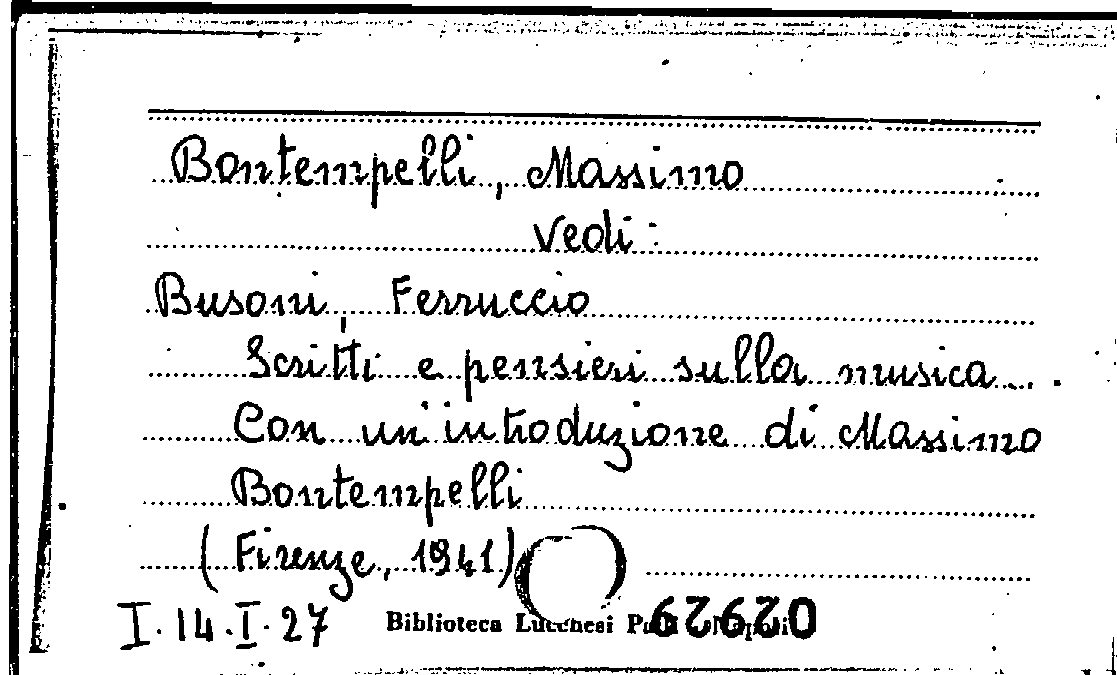 Bontempelli, Massimo
Vedi:
Busoni, Ferruccio
Scritti e pensieri sulla musica...
Con un'introduzione di Massimo
Bontempelli
(Firenze, 1941)
I.14.I.27 Biblioteca Lucchesi